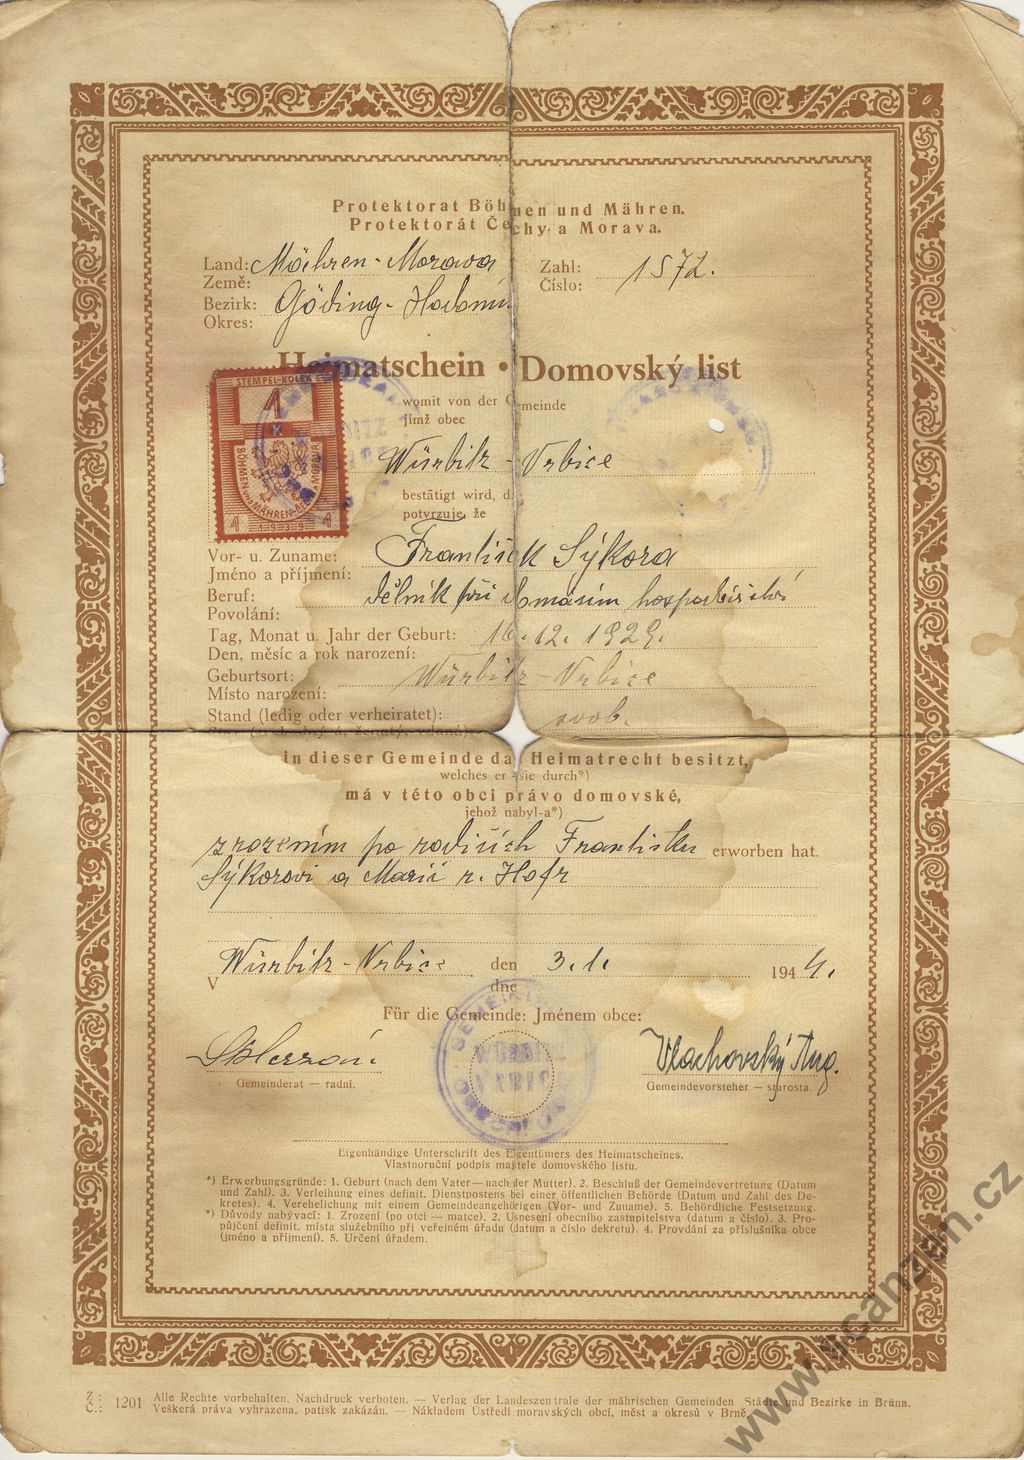 Protektorat Böhmen und Mähren.
Protektorát Čechy a Morava.
Land: Mähren - Morava
Země:
Zahl: 1572.
Číslo:
Bezirk: Göding - Hodonín
Okres:
Heimatschein • Domovský list
STEMPEL-KOLEK
1
BÖHMEN UND MÄHREN-ČECHY A MORAVA
1 1939 1
womit von der Gemeinde
jímž obec
Würbitz - Vrbice
bestätigt wird,
potvrzuje, že
Vor- u. Zuname: František Sýkora
Jméno a příjmení:
Beruf: dělník při domácím hospodářství
Povolání:
Tag, Monat u. Jahr der Geburt: 16.12.1929.
Den, měsíc a rok narození:
Geburtsort: Würbitz - Vrbice
Místo narození:
Stand (ledig oder verheiratet): svob.
in dieser Gemeinde das Heimatrecht besitzt,
welches er - sie durch*)
má v této obci právo domovské,
jehož nabyl-a*)
zrozením po rodičích Františku erworben hat.
Sýkorovi a Marii r. Hofr
V Würbitz - Vrbice den 3.1. 1944.
dne
Für die Gemeinde: Jménem obce:
GEMEINDE
WÜRBITZ
VRBICE
Vlachovský Aug.
Gemeinderat — radní.
Gemeindevorsteher — starosta.
Eigenhändige Unterschrift des Eigentümers des Heimatscheines.
Vlastnoruční podpis majitele domovského listu.
*) Erwerbungsgründe: 1. Geburt (nach dem Vater — nach der Mutter). 2. Beschluß der Gemeindevertretung (Datum
und Zahl). 3. Verleihung eines definit. Dienstpostens bei einer öffentlichen Behörde (Datum und Zahl des De-
kretes). 4. Verehelichung mit einem Gemeindeangehörigen (Vor- und Zuname). 5. Behördliche Festsetzung.
*) Důvody nabývací: 1. Zrození (po otci — matce). 2. Usnesení obecního zastupitelstva (datum a číslo). 3. Pro-
půjčení definit. místa služebního při veřejném úřadu (datum a číslo dekretu). 4. Provdání za příslušníka obce
(jméno a příjmení). 5. Určení úřadem.
Z.: 1201 Alle Rechte vorbehalten. Nachdruck verboten. — Verlag der Landeszentrale der mährischen Gemeinden, Städte und Bezirke in Brünn.
Č.: Veškerá práva vyhrazena, patisk zakázán. — Nákladem Ústředí moravských obcí, měst a okresů v Brně.
www.scanzen.cz